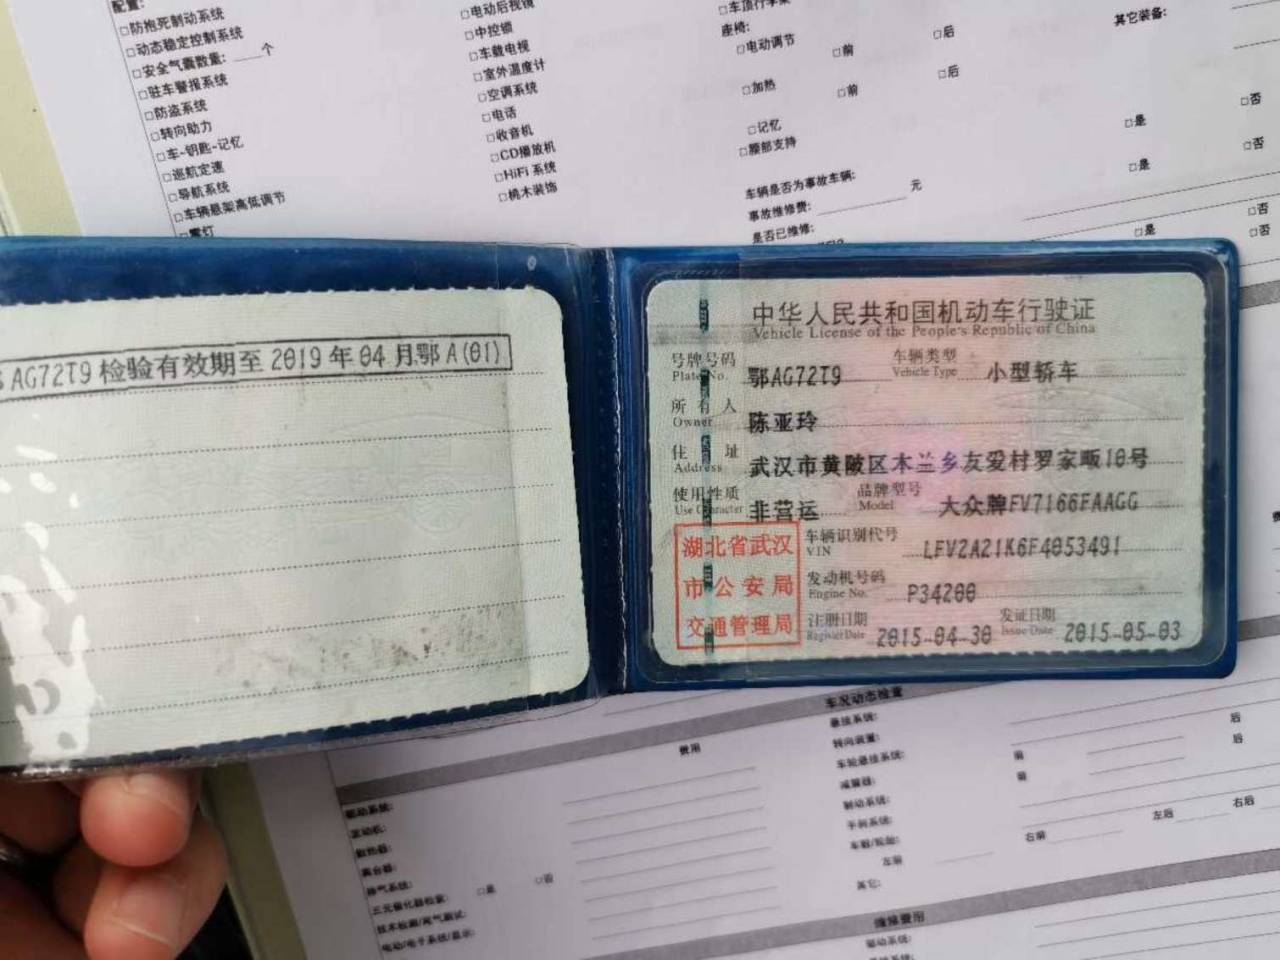 配置:
□防抱死制动系统
□动态稳定控制系统
□安全气囊数量: ____个
□驻车警报系统
□防盗系统
□转向助力
□车-钥匙-记忆
□巡航定速
□导航系统
□车辆悬架高低调节
□电动后视镜
□中控锁
□车载电视
□室外温度计
□空调系统
□电话
□收音机
□CD播放机
□HiFi 系统
□桃木装饰
□车顶行李架
座椅:
□电动调节 □前 □后
□加热 □前 □后
□记忆
□腰部支持
其它装备:
车辆是否为事故车辆: □是 □否
事故维修费: ____元 □是 □否
是否已维修: □是 □否
□否
AG72T9 检验有效期至 2019 年 04 月鄂 A(01)
中华人民共和国机动车行驶证
Vehicle License of the People's Republic of China
号牌号码 鄂AG72T9 车辆类型 小型轿车
Plate No. Vehicle Type
所有人 陈亚玲
Owner
住址 武汉市黄陂区木兰乡友爱村罗家畈10号
Address
使用性质 非营运 品牌型号 大众牌FV7166FAAGG
Use Character Model
湖北省武汉
市公安局
交通管理局
车辆识别代号 LFV2A21K6F4053491
VIN
发动机号码 P34200
Engine No.
注册日期 2015-04-30 发证日期 2015-05-03
Register Date Issue Date
车况动态检查
费用
驱动系统:
发动机:
散热器:
离合器:
排气系统: □是 □否
三元催化器检查:
技术检测/尾气测试:
电动/电子系统/显示:
悬挂系统: 后
转向装置: 后
车轮悬挂系统: 前
减震器: 前
制动系统:
手刹系统:
车器/轮胎: 右前 左后 右后
左前
其它:
维修费用
驱动系统: